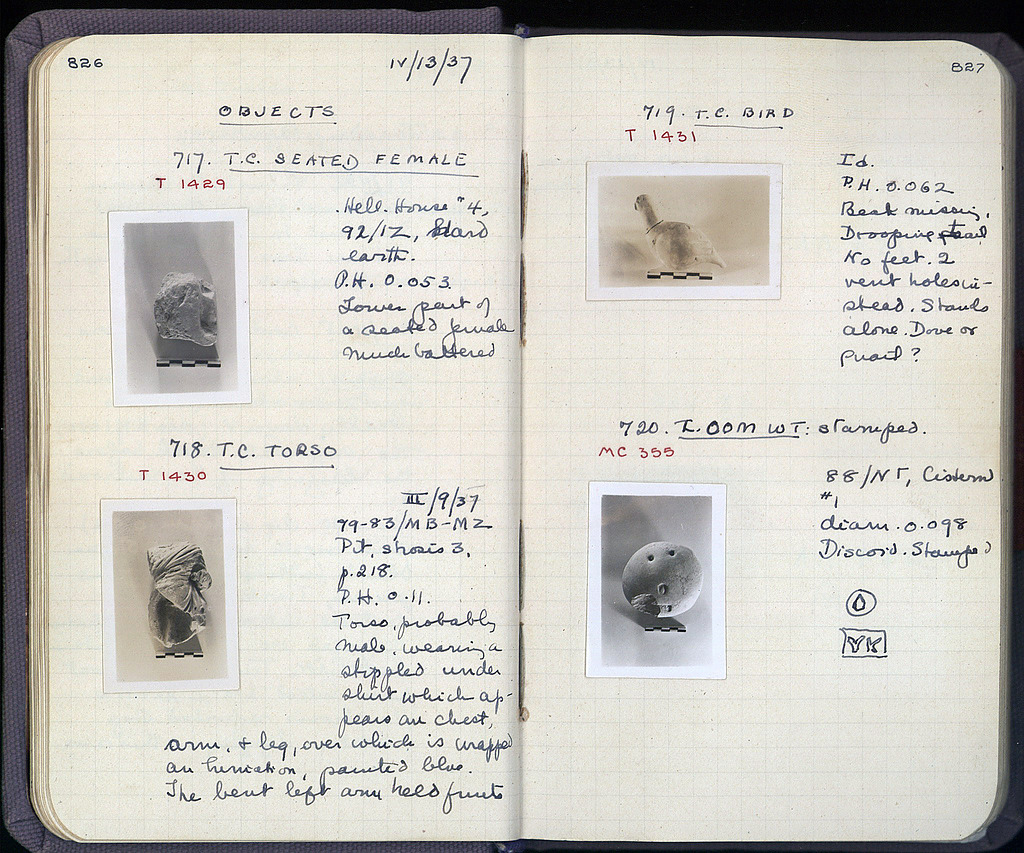 826
IV/13/37
OBJECTS
717. T.C. SEATED FEMALE
T 1429
Hell. House #4,
92/IZ, Hard
earth.
P.H. 0.053.
Lower part of
a seated female
much battered
718. T.C. TORSO
T 1430
III/9/37
79-83/MB-MZ
Pit, strosis 3,
p.218.
P.H. 0.11.
Torso, probably
male, wearing a
stippled under
shirt which ap-
pears on chest,
arm, & leg, over which is wrapped
an himation, painted blue.
The bent left arm held fruits
827
719. T.C. BIRD
T 1431
Id.
P.H. 0.062
Beak missing.
Drooping tail
No feet. 2
vent holes in-
stead. Stands
alone. Dove or
quail?
720. LOOM WT: stamped.
MC 355
88/NΓ, Cistern
#1
diam. 0.098
Discoid. Stamped